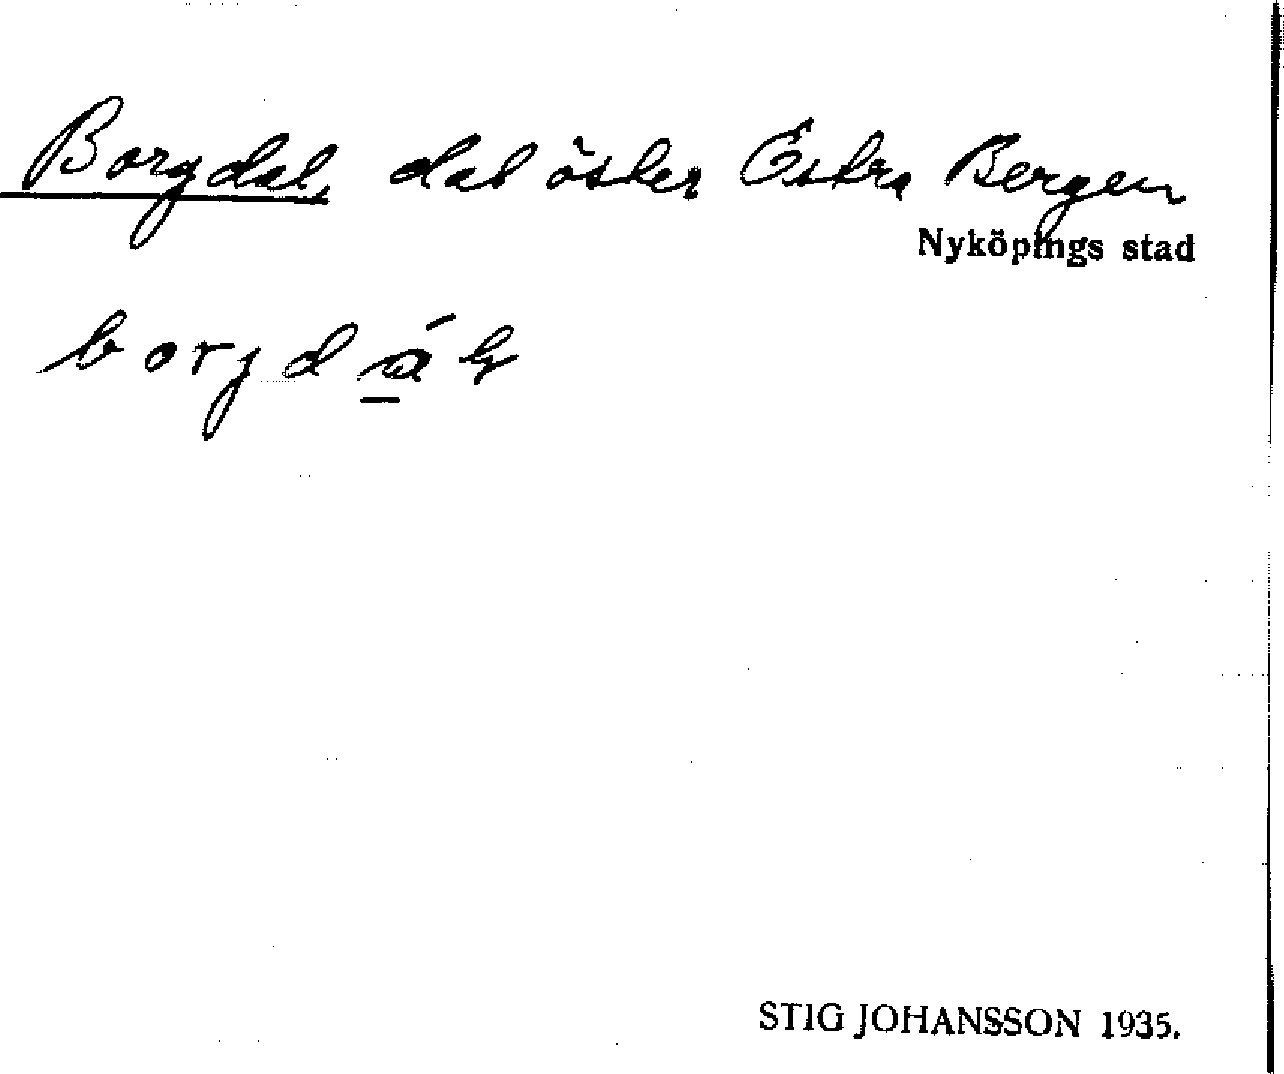 Borgdal, dal öster Östra Bergen
Nyköpings stad
borjdál
STIG JOHANSSON 1935.